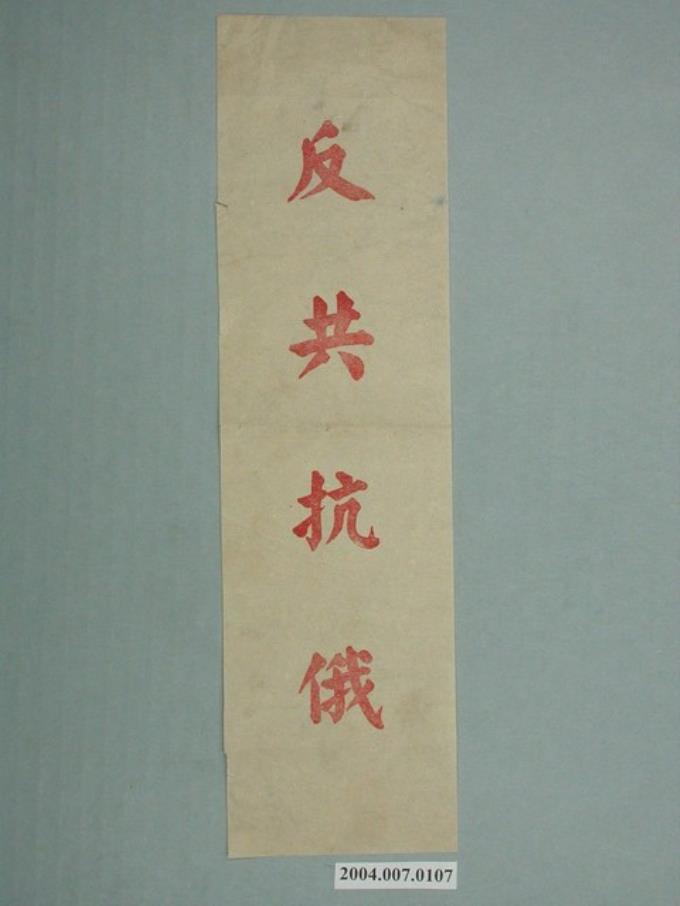 反共抗俄
2004.007.0107